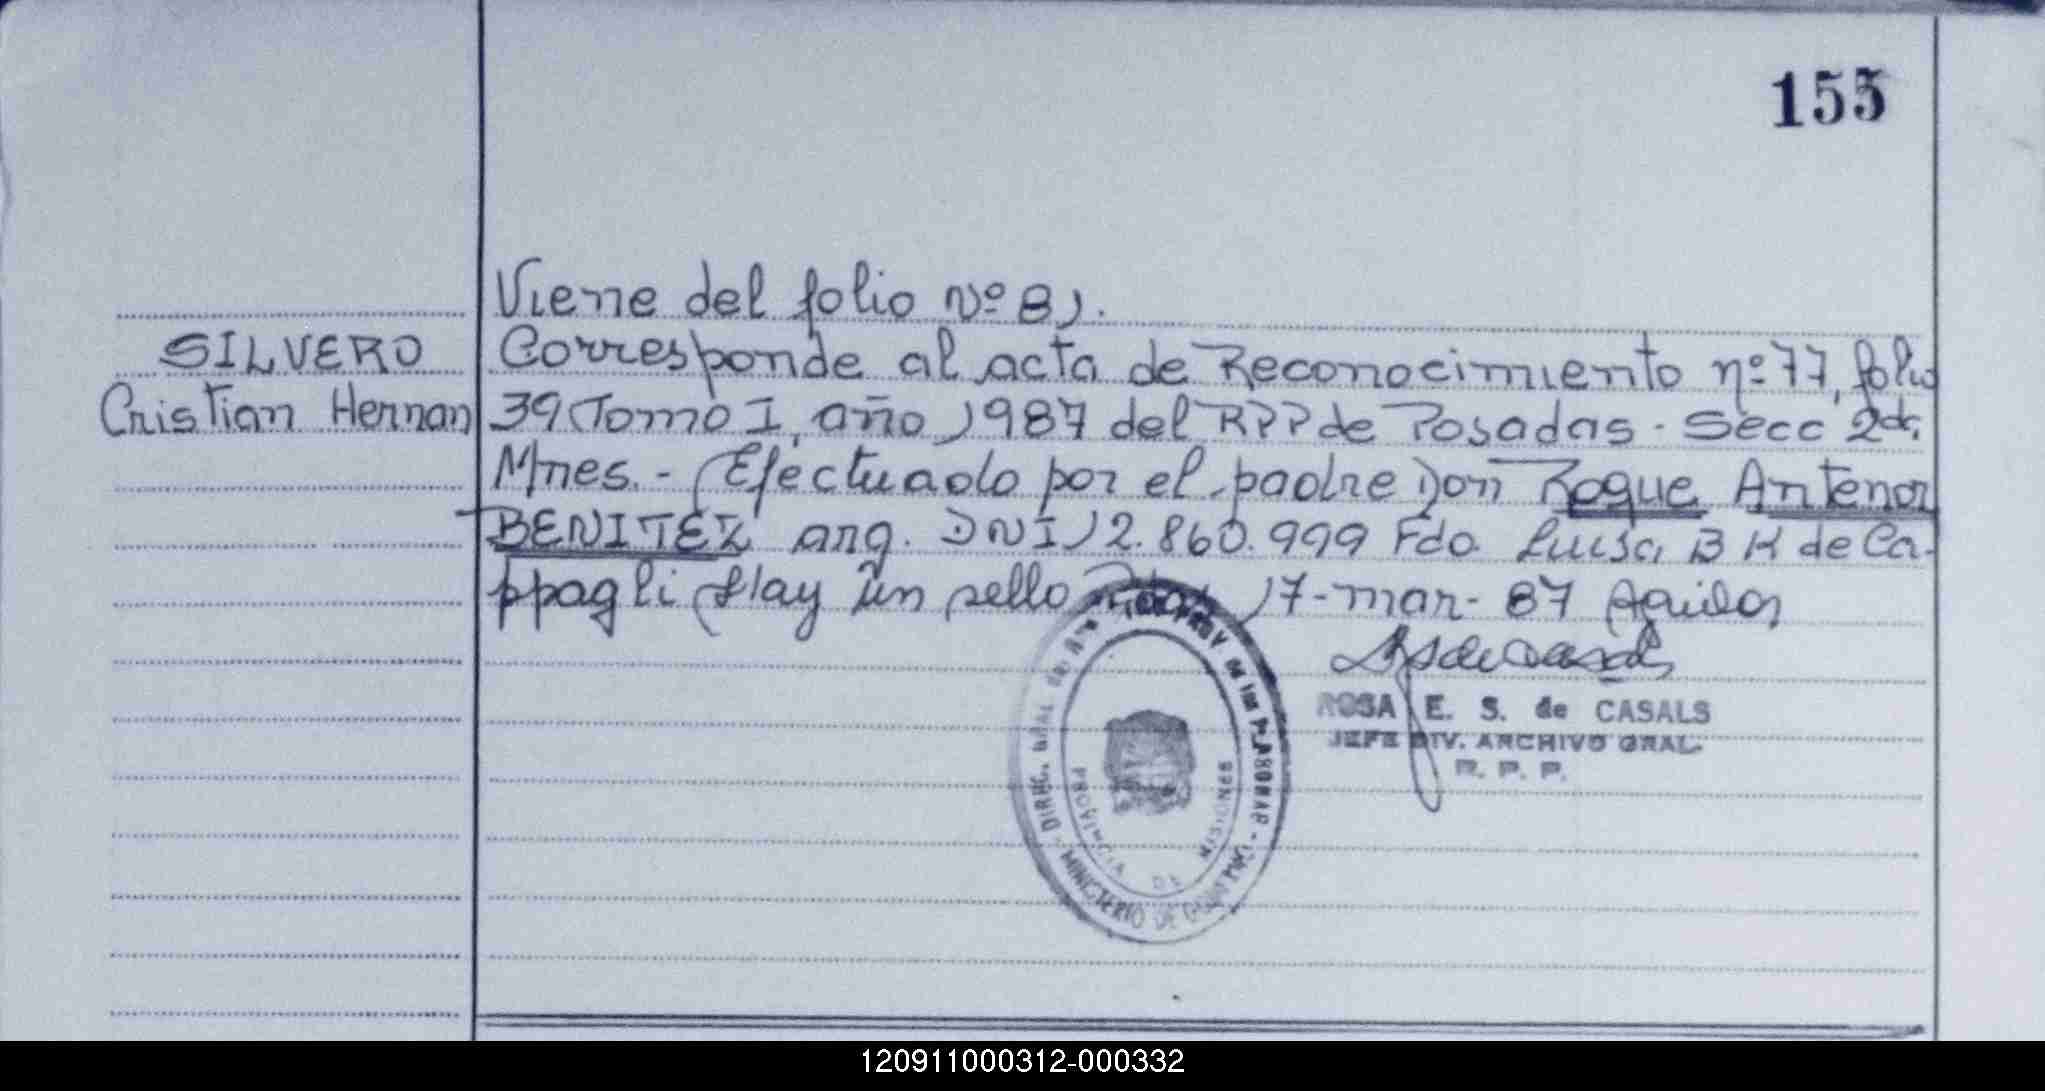 155
Viene del folio Nº 81.
SILVERO
Cristian Hernan
Corresponde al acta de Reconocimiento nº 77, folio
39 Tomo I, año 1987 del RPP de Posadas. Secc 2da.
Mnes. - Efectuado por el padre Don Roque Antenor
BENITEZ arg. DNI 12.860.999 Fdo. Luisa B K de Ca-
ppagli Hay un sello 17-mar-87
ROSA E. S. de CASALS
JEFE DIV. ARCHIVO GRAL.
R. P. P.
PROVINCIA DE MISIONES
120911000312-000332